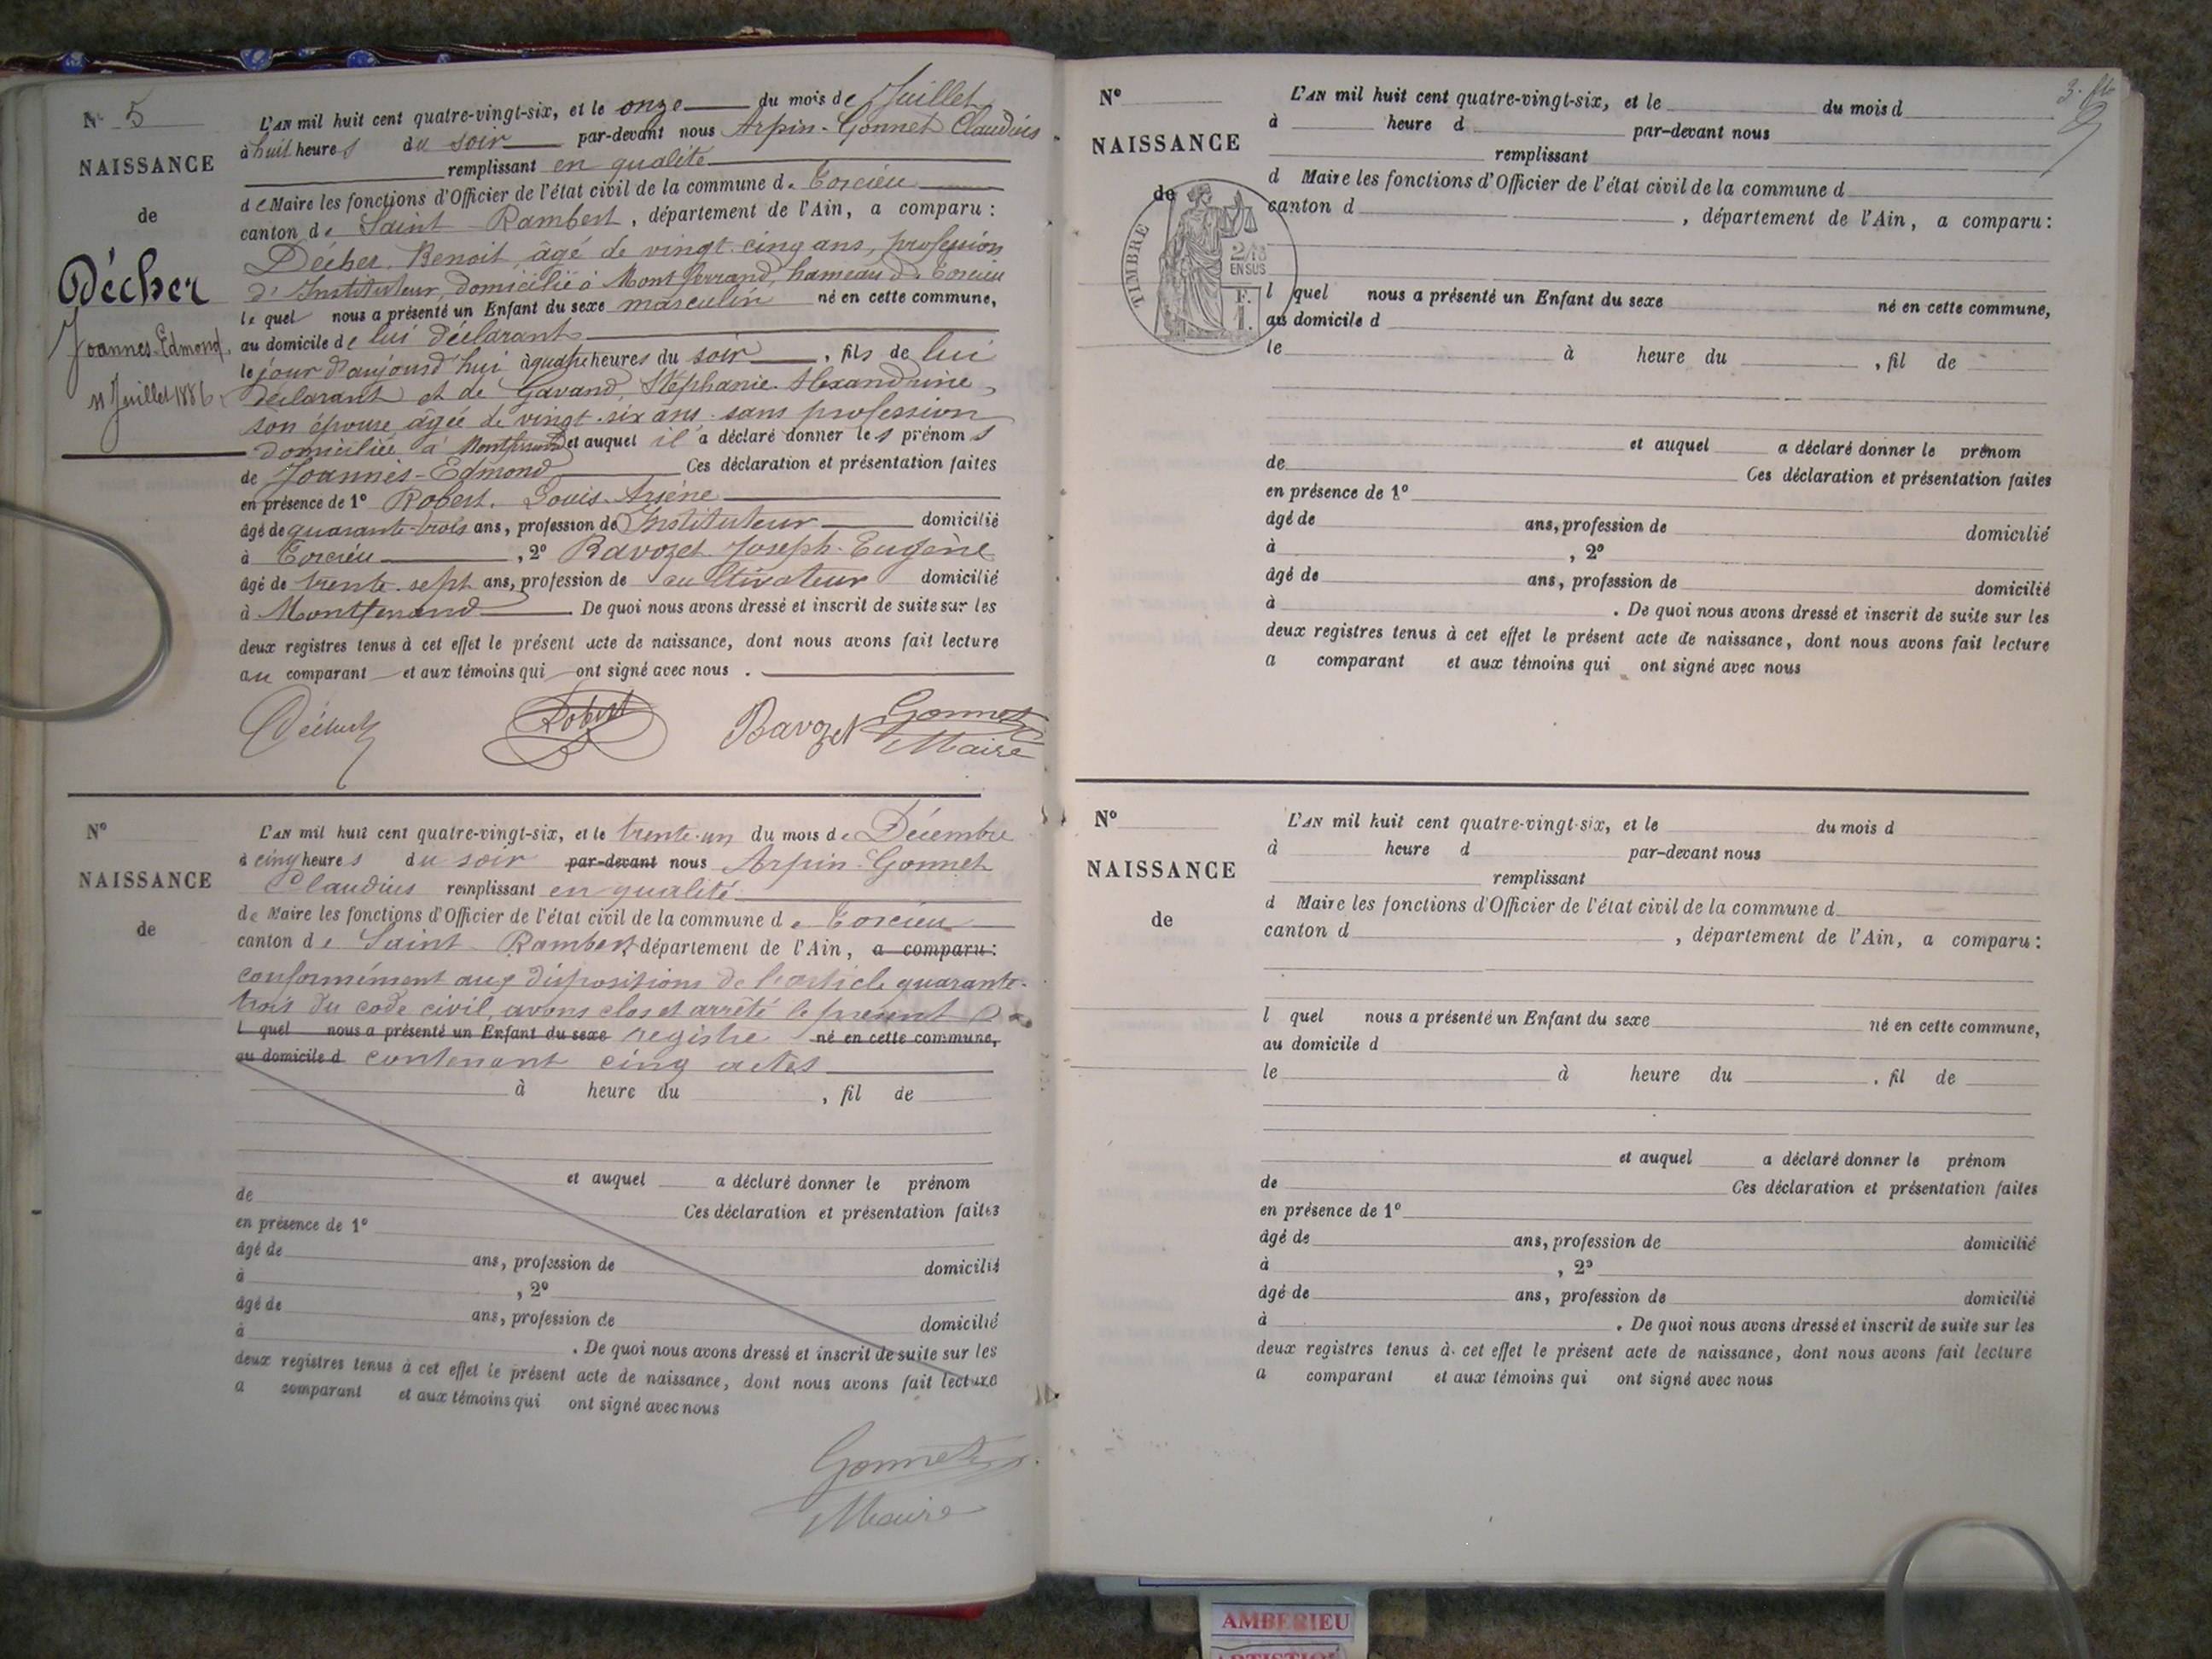 N° 5
NAISSANCE
de
Décher
Joannes-Edmond
11 Juillet 1886
L'AN mil huit cent quatre-vingt-six, et le onze du mois de Juillet
à huit heures du soir par-devant nous Arpin-Gonnet Claudius
remplissant en qualité
de Maire les fonctions d'Officier de l'état civil de la commune de Torcieu
canton de Saint-Rambert, département de l'Ain, a comparu :
Décher Benoit, âgé de vingt-cinq ans, profession
d'Instituteur, domicilié à Montferrand, hameau de Torcieu
lequel nous a présenté un Enfant du sexe masculin né en cette commune,
au domicile de lui déclarant
le jour d'aujourd'hui à quatre heures du soir, fils de lui
déclarant et de Gavand, Stéphanie-Alexandrine,
son épouse âgée de vingt-six ans, sans profession
domiciliée à Montferrand et auquel il a déclaré donner les prénoms
de Joannès-Edmond Ces déclaration et présentation faites
en présence de 1° Robert, Louis-Arsène
âgé de quarante-trois ans, profession de Instituteur domicilié
à Torcieu, 2° Ravozet Joseph-Eugène
âgé de trente-sept ans, profession de cultivateur domicilié
à Montferrand. De quoi nous avons dressé et inscrit de suite sur les
deux registres tenus à cet effet le présent acte de naissance, dont nous avons fait lecture
au comparant et aux témoins qui ont signé avec nous.
Décher Robert Ravozet Gonnet
Maire
N°
NAISSANCE
de
L'AN mil huit cent quatre-vingt-six, et le trente-un du mois de Décembre
à cinq heures du soir par-devant nous Arpin-Gonnet
Claudius remplissant en qualité
de Maire les fonctions d'Officier de l'état civil de la commune de Torcieu
canton de Saint-Rambert, département de l'Ain, a comparu :
conformément aux dispositions de l'article quarante-
trois du code civil, avons clos et arrêté le présent
l quel nous a présenté un Enfant du sexe registre né en cette commune,
au domicile d contenant cinq actes
à heure du , fil de
et auquel a déclaré donner le prénom
de Ces déclaration et présentation faites
en présence de 1°
âgé de ans, profession de domicilié
à , 2°
âgé de ans, profession de domicilié
à . De quoi nous avons dressé et inscrit de suite sur les
deux registres tenus à cet effet le présent acte de naissance, dont nous avons fait lecture
a comparant et aux témoins qui ont signé avec nous
Gonnet
Maire
N°
NAISSANCE
de
TIMBRE
2/10
EN SUS
F.
1.
L'AN mil huit cent quatre-vingt-six, et le du mois d
à heure d par-devant nous
remplissant
d Maire les fonctions d'Officier de l'état civil de la commune d
canton d , département de l'Ain, a comparu :
l quel nous a présenté un Enfant du sexe né en cette commune,
au domicile d
le à heure du , fil de
et auquel a déclaré donner le prénom
de Ces déclaration et présentation faites
en présence de 1°
âgé de ans, profession de domicilié
à , 2°
âgé de ans, profession de domicilié
à . De quoi nous avons dressé et inscrit de suite sur les
deux registres tenus à cet effet le présent acte de naissance, dont nous avons fait lecture
a comparant et aux témoins qui ont signé avec nous
N°
NAISSANCE
de
L'AN mil huit cent quatre-vingt-six, et le du mois d
à heure d par-devant nous
remplissant
d Maire les fonctions d'Officier de l'état civil de la commune d
canton d , département de l'Ain, a comparu :
l quel nous a présenté un Enfant du sexe né en cette commune,
au domicile d
le à heure du , fil de
et auquel a déclaré donner le prénom
de Ces déclaration et présentation faites
en présence de 1°
âgé de ans, profession de domicilié
à , 2°
âgé de ans, profession de domicilié
à . De quoi nous avons dressé et inscrit de suite sur les
deux registres tenus à cet effet le présent acte de naissance, dont nous avons fait lecture
a comparant et aux témoins qui ont signé avec nous
AMBERIEU